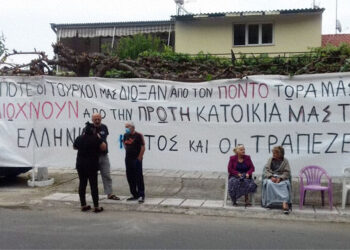 ΠΟΤΕ ΟΙ ΤΟΥΡΚΟΙ ΜΑΣ ΔΙΩΞΑΝ ΑΠΟ ΤΟΝ ΠΟΝΤΟ ΤΩΡΑ ΜΑΣ
ΔΙΩΧΝΟΥΝ ΑΠΟ ΤΗΝ ΠΡΩΤΗ ΚΑΤΟΙΚΙΑ ΜΑΣ Τ
ΕΛΛΗΝΙ ΤΟΣ ΚΑΙ ΟΙ ΤΡΑΠΕΖΕ